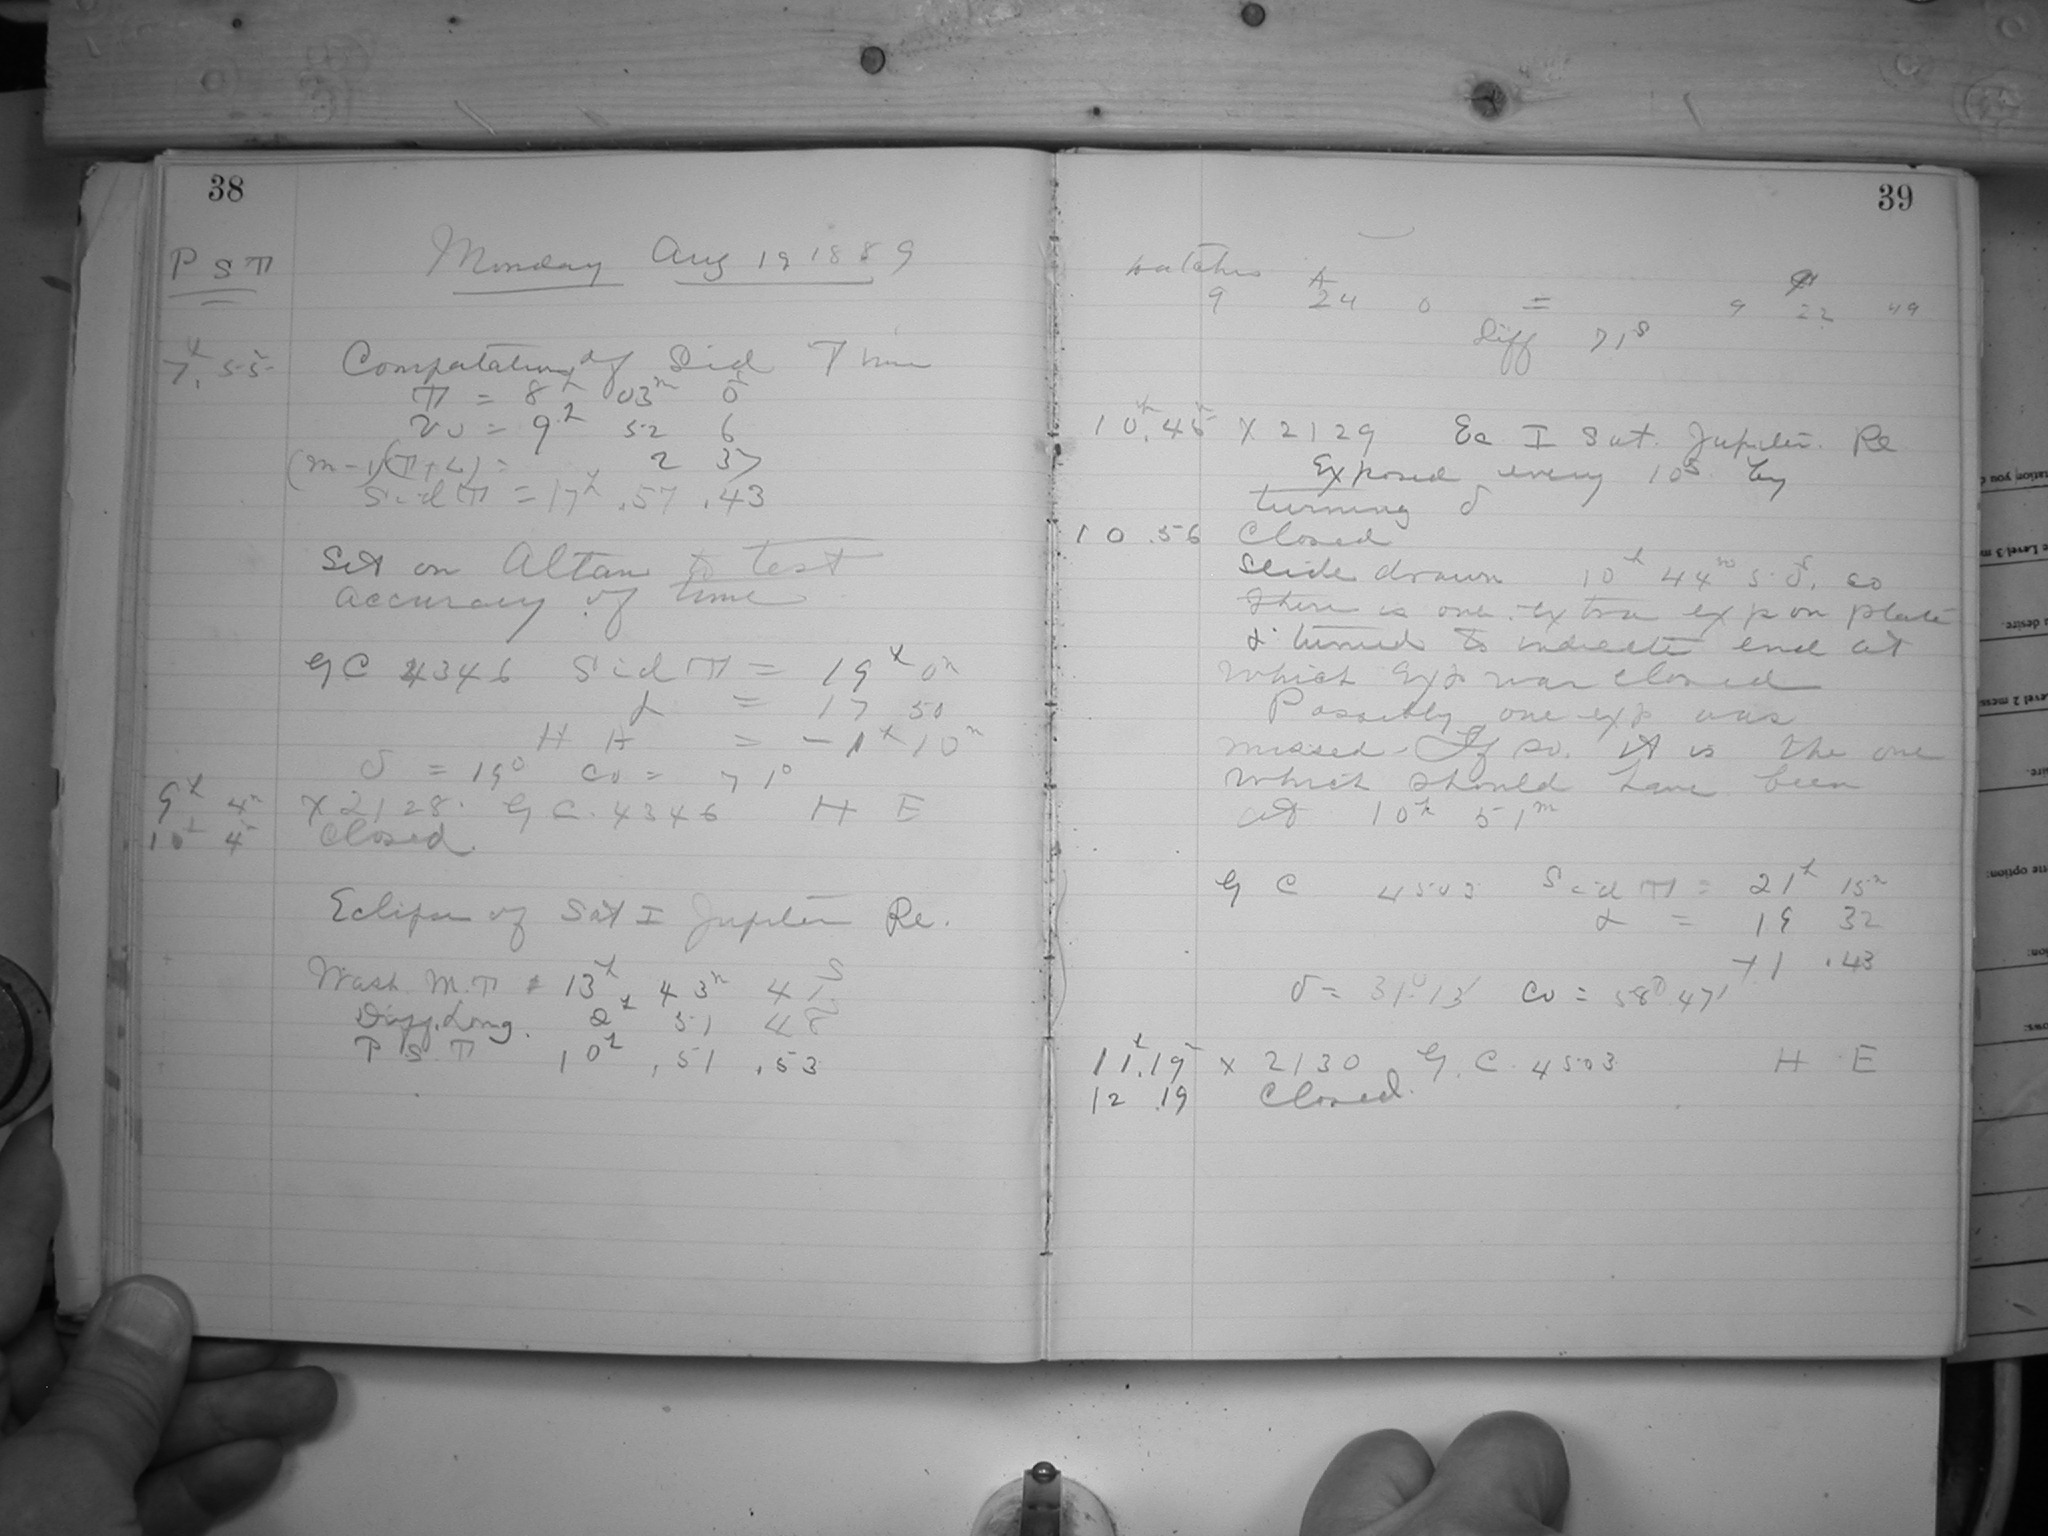 38
P S T
Monday Aug 19 1889
7h.55 Computation of Sid Time
T = 8h 03m 0s
= 9h 52 6
(m-1)(T+L) = 2 37
Sid T = 17h.57.43
Set on Altair to test
accuracy of time
G C 4346 Sid T = 19h 0m
α = 17 50
H A = -1h 10m
δ = 19° co = 71°
9h 4m X2128. G C. 4346 H E
10h 4m Closed.
Eclipse of Sat I Jupiter Re.
Wash. M.T = 13h.43m 41s
Diff. Long. 2h 51 48
P S T 10h.51.53
39
watches A
9 24 0 = 9 22 49
Diff 71s
10h.45 X 2129 Ec I Sat. Jupiter. Re
Exposed every 10s by
turning δ
10.56 Closed
Slide drawn 10h 44m 50s. so
there is one extra exp on plate
α turned to indicate end at
which exp was closed
Possibly one exp was
missed - If so. it is the one
which should have been
at 10h 51m
G C 4503 Sid T = 21h 15m
α = 19 32
+1.43
δ = 31° 13' co = 58° 47'
11h.19m X 2130 G. C. 4503 H E
12.19 Closed.